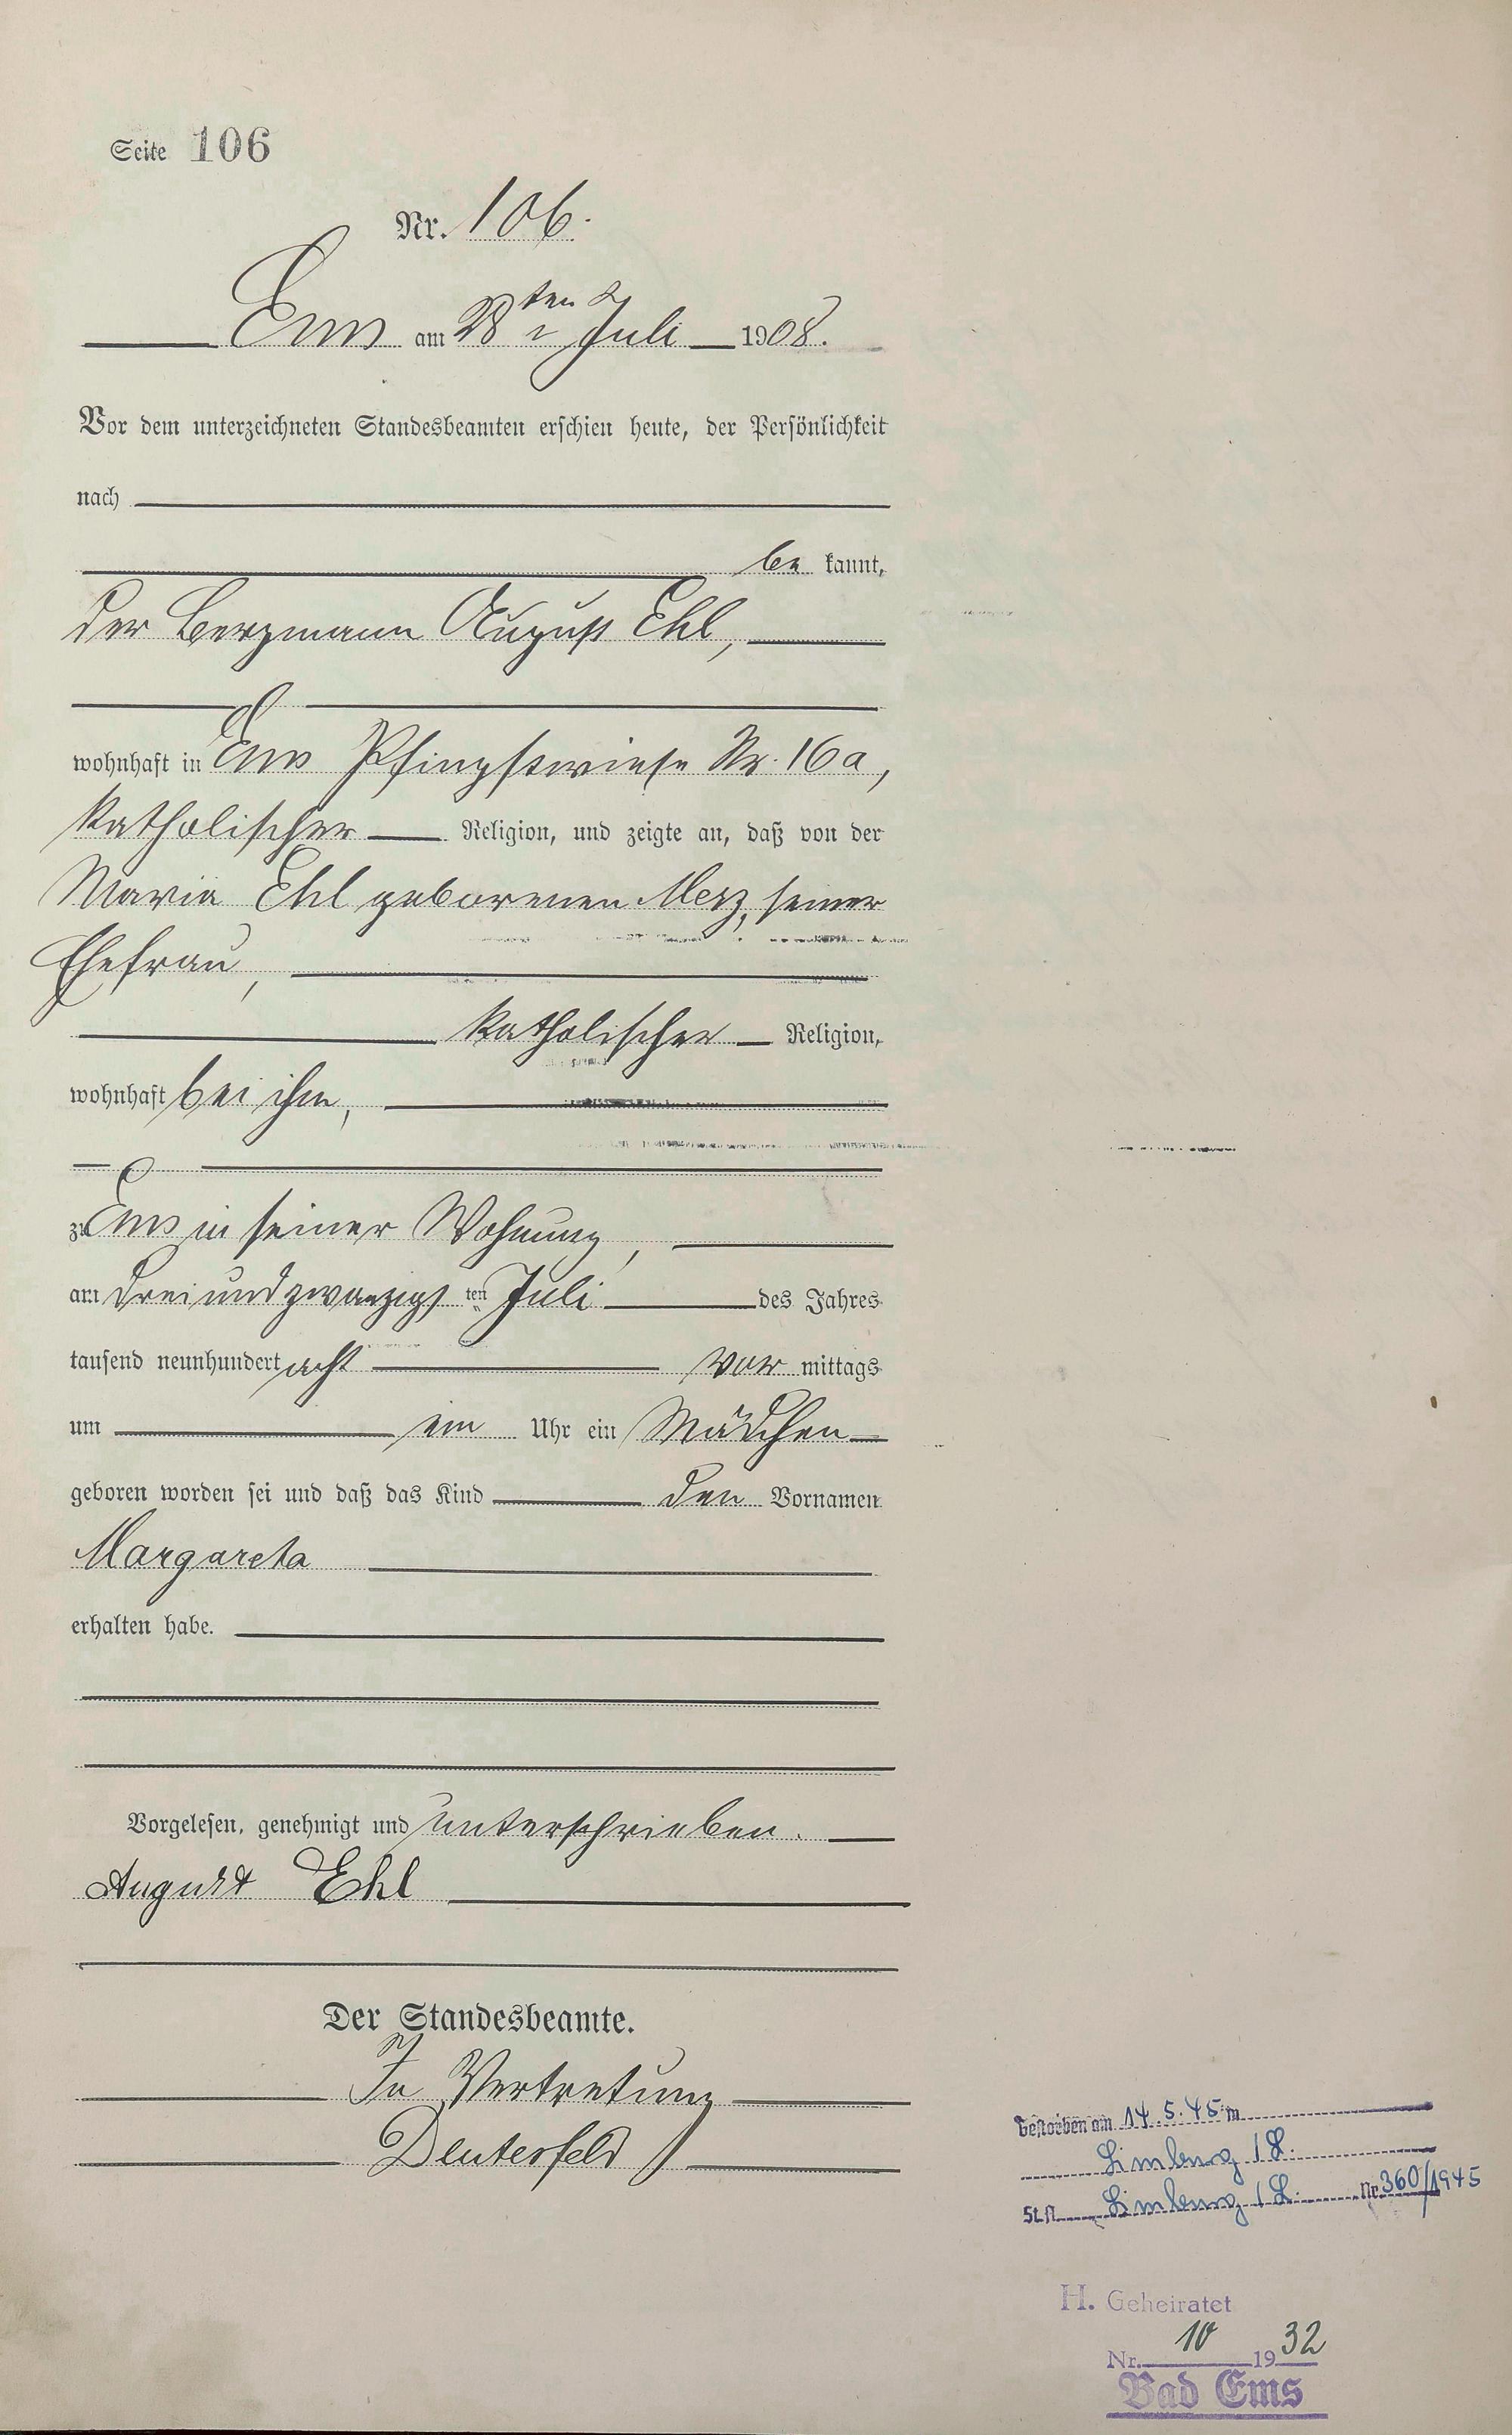 Seite 106
Nr. 106.
Ems am 28ten Juli 1908.
Vor dem unterzeichneten Standesbeamten erschien heute, der Persönlichkeit
nach
be kannt,
der Bergmann August Ehl,
wohnhaft in Ems Pfingstwiese Nr. 16a,
katholischer Religion, und zeigte an, daß von der
Maria Ehl geborenen Merz, seiner
Ehefrau,
katholischer Religion,
wohnhaft bei ihm,
zu Ems in seiner Wohnung,
am dreiundzwanzigsten Juli des Jahres
tausend neunhundert acht vor mittags
um ein Uhr ein Mädchen
geboren worden sei und daß das Kind den Vornamen
Margareta
erhalten habe.
Vorgelesen, genehmigt und unterschrieben.
August Ehl
Der Standesbeamte.
In Vertretung
Gestorben am 14.5.45 in
Limburg / L.
St.A. Limburg / L. Nr. 360/1945
H. Geheiratet
Nr. 10 1932
Bad Ems